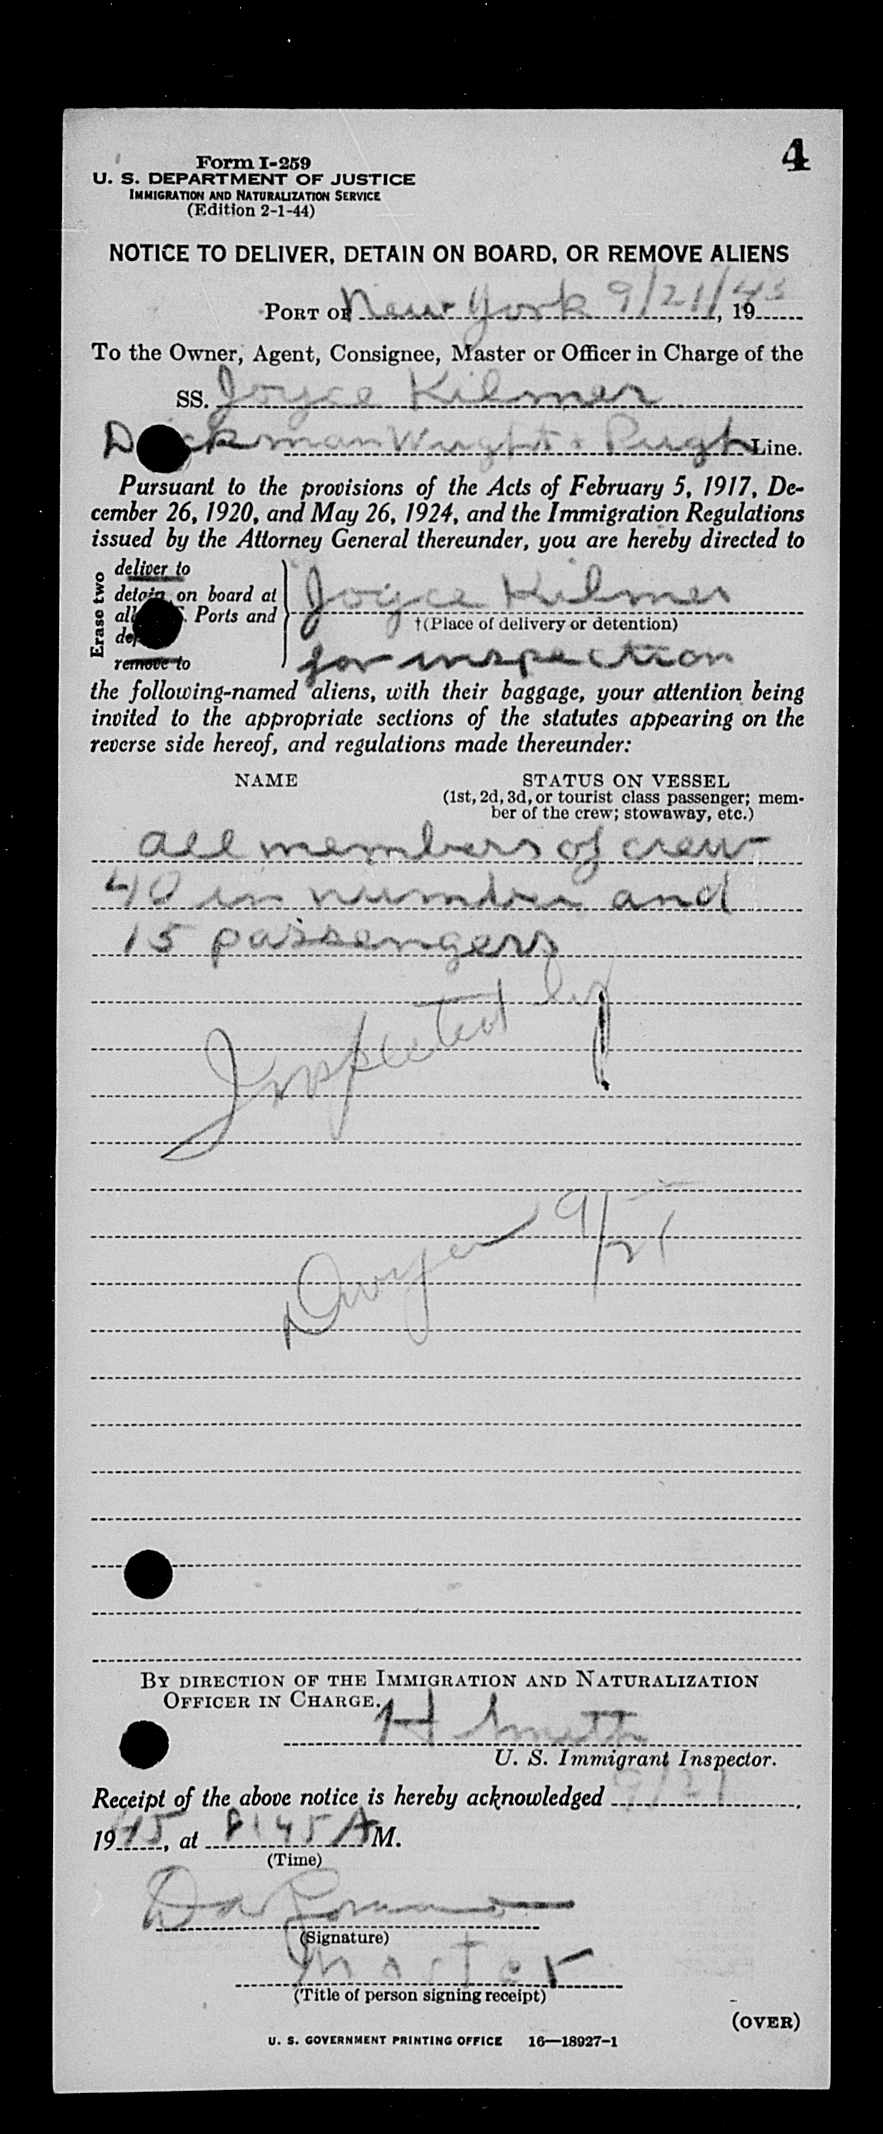 4
Form I-259
U. S. DEPARTMENT OF JUSTICE
IMMIGRATION AND NATURALIZATION SERVICE
(Edition 2-1-44)
NOTICE TO DELIVER, DETAIN ON BOARD, OR REMOVE ALIENS
PORT OF New York 9/21/45, 19
To the Owner, Agent, Consignee, Master or Officer in Charge of the
SS. Joyce Kilmer
Wright & Pugh Line.
Pursuant to the provisions of the Acts of February 5, 1917, De-
cember 26, 1920, and May 26, 1924, and the Immigration Regulations
issued by the Attorney General thereunder, you are hereby directed to
Erase two
deliver to
detain on board at
all Ports and
remove to
Joyce Kilmer
†(Place of delivery or detention)
for inspection
the following-named aliens, with their baggage, your attention being
invited to the appropriate sections of the statutes appearing on the
reverse side hereof, and regulations made thereunder:
NAME STATUS ON VESSEL
(1st, 2d, 3d, or tourist class passenger; mem-
ber of the crew; stowaway, etc.)
all members of crew
40 in number and
15 passengers
Inspected by
Dwyer 9/21
BY DIRECTION OF THE IMMIGRATION AND NATURALIZATION
OFFICER IN CHARGE.
H Smith
U. S. Immigrant Inspector.
Receipt of the above notice is hereby acknowledged 9/21,
1945, at 8:45 AM.
(Time)
(Signature)
Master
(Title of person signing receipt)
(OVER)
U. S. GOVERNMENT PRINTING OFFICE 16—18927-1